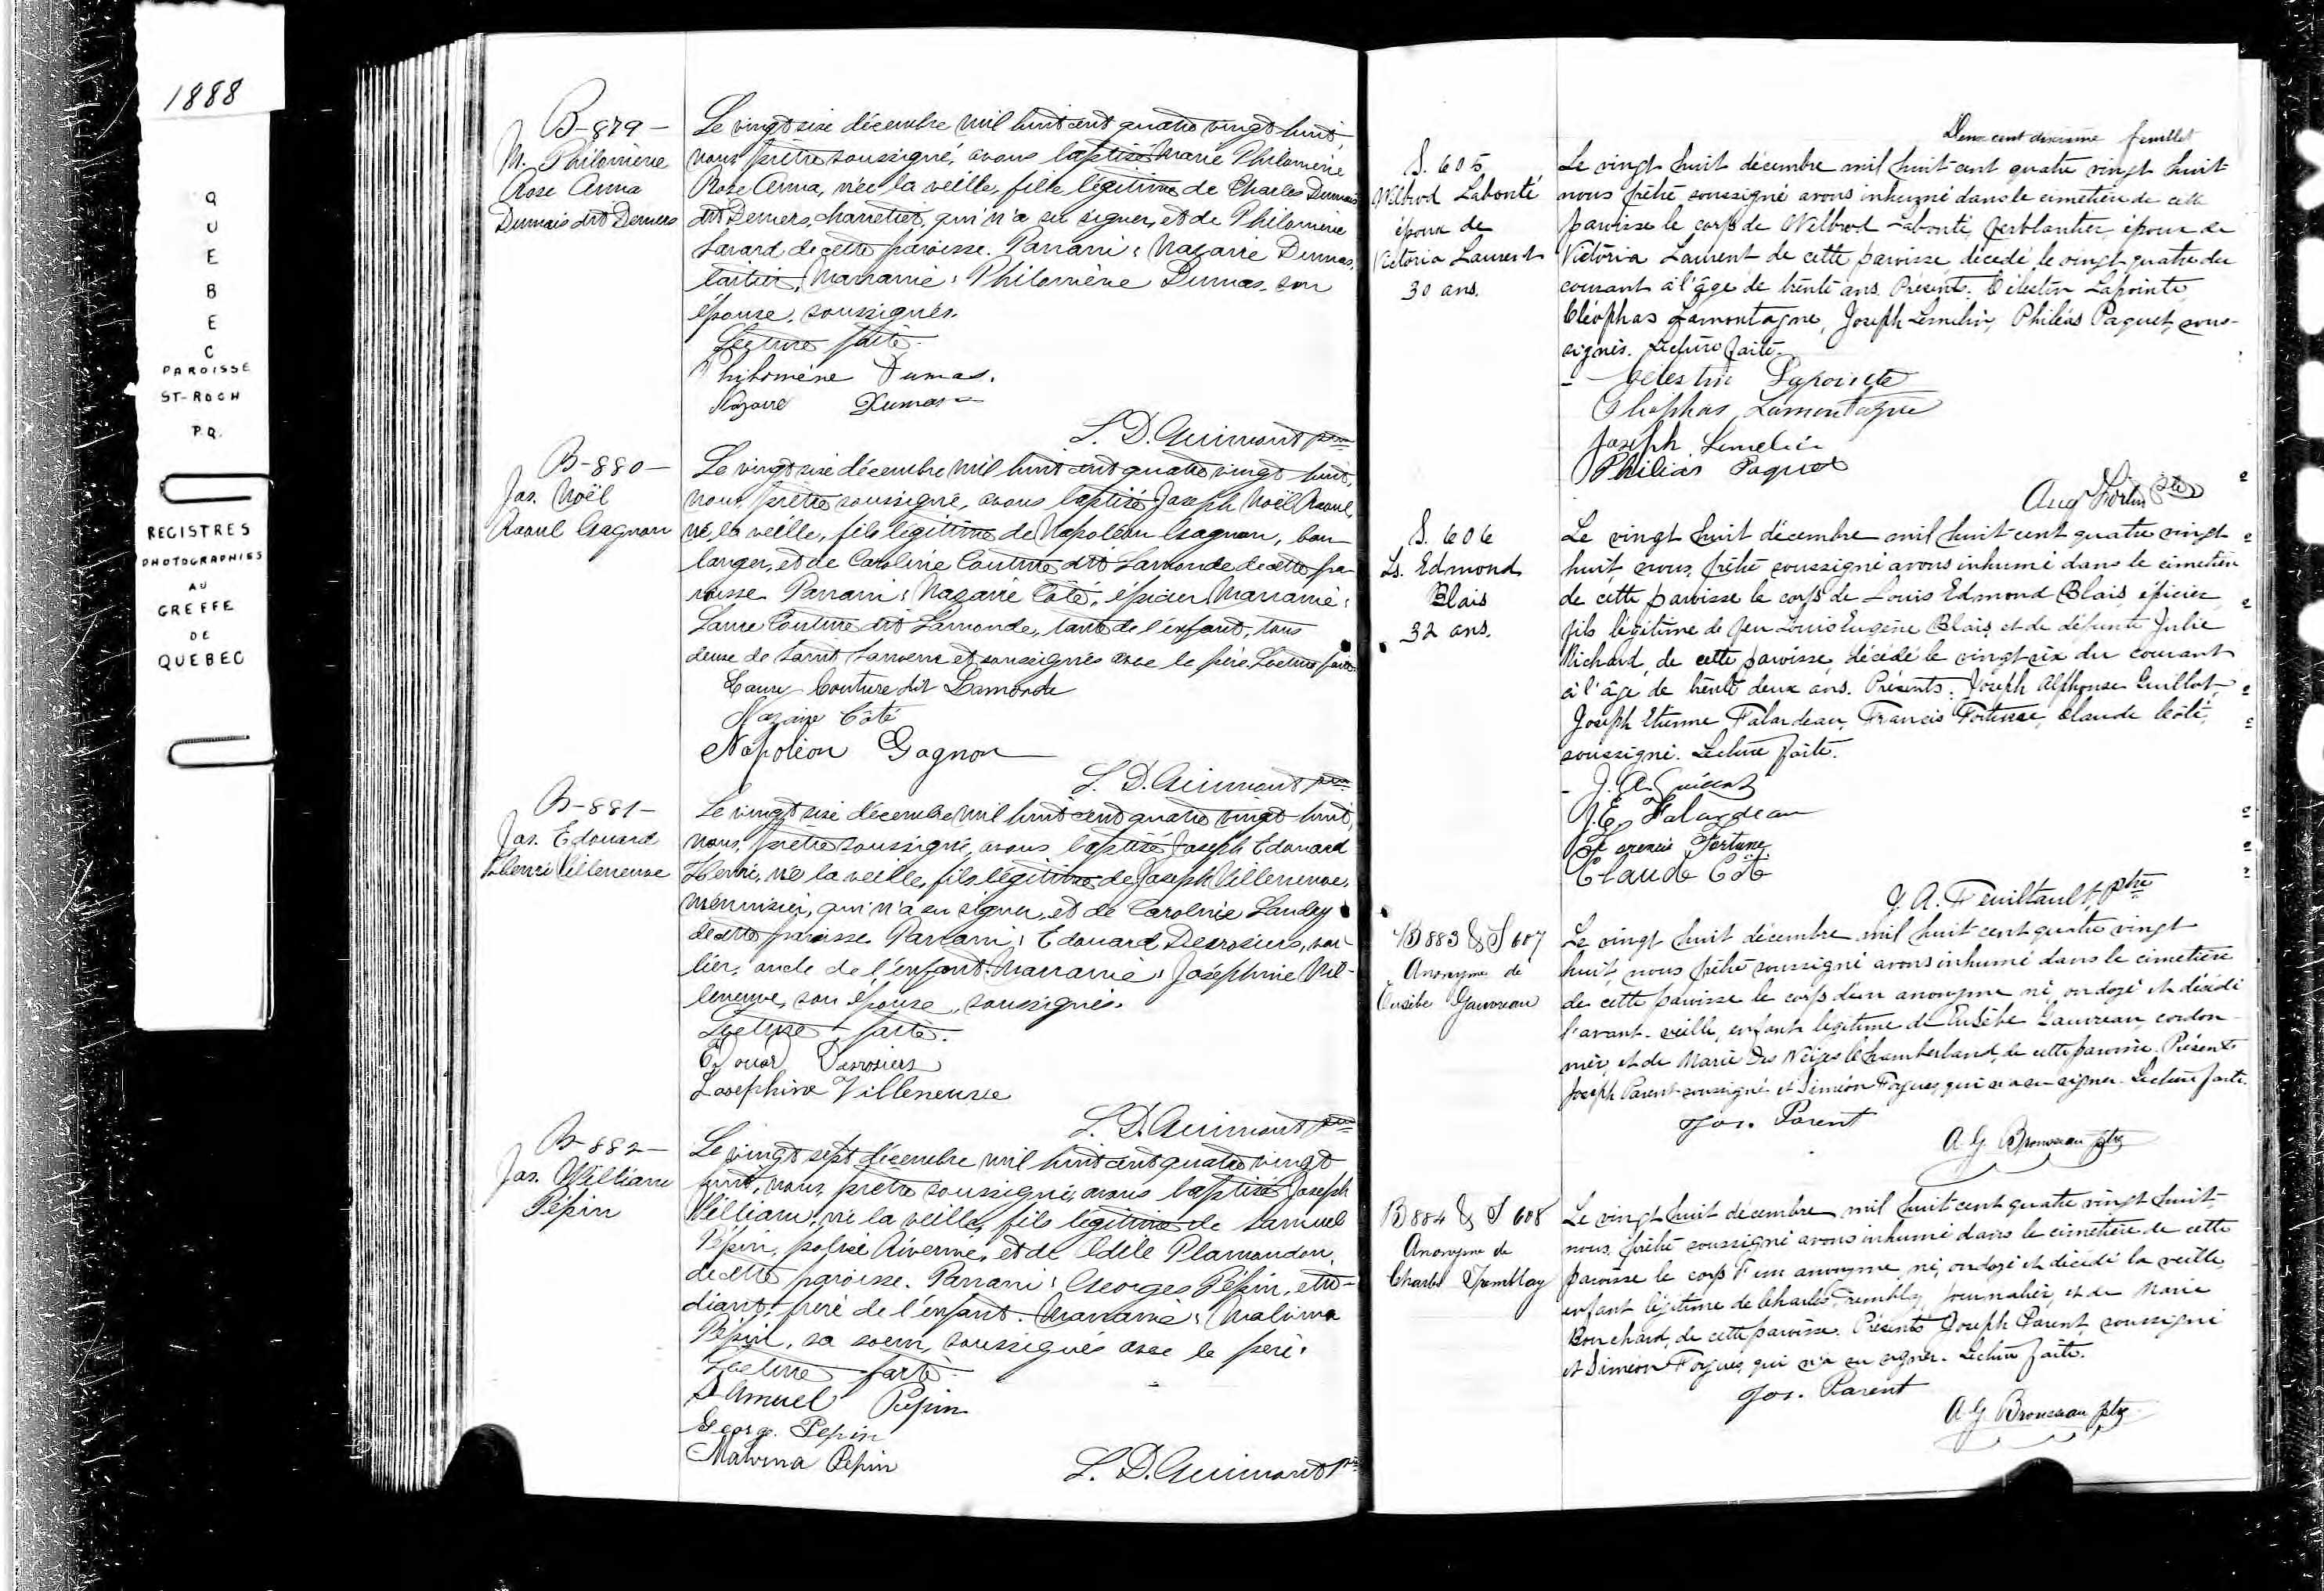 1888
QUEBEC
PAROISSE
ST-ROCH
P.Q.
REGISTRES
PHOTOGRAPHIES
AU
GREFFE
DE
QUEBEC
B-879-
M. Philomène
Rose Anna
Dumais dit Demers
Le vingt six décembre mil huit cent quatre vingt-huit,
nous, prêtre soussigné, avons baptisé Marie Philomène
Rose Anna, née la veille, fille légitime de Charles Dumais
dit Demers, charretier, qui n'a su signer, et de Philomène
Savard de cette paroisse. Parrain: Nazaire Dumas,
Marraine: Philomène Dumas, son
épouse, soussignés.
Lecture faite.
Philomène Dumas.
Nazaire Dumas
L. D. Guimont ptre
B-880-
Jos. Noël
Raoul Gagnon
Le vingt six décembre mil huit cent quatre vingt huit,
nous, prêtre soussigné, avons baptisé Joseph Noël Raoul,
né, la veille, fils légitime de Napoléon Gagnon, bou-
langer, et de Caroline Couture dit Lamonde de cette pa-
roisse. Parrain: Nazaire Côté, épicier, Marraine:
Laure Couture dit Lamonde, tante de l'enfant, tous
deux de Saint Sauveur et soussignés avec le père. Lecture faite.
Laure Couture dit Lamonde
Nazaire Côté
Napoléon Gagnon
L. D. Guimont ptre
B-881-
Jos. Edouard
Henri Villeneuve
Le vingt six décembre mil huit cent quatre vingt-huit,
nous, prêtre soussigné, avons baptisé Joseph Edouard
Henri, né la veille, fils légitime de Joseph Villeneuve,
menuisier, qui n'a su signer, et de Caroline Landry
de cette paroisse. Parrain: Edouard Desrosiers, voi-
lier, oncle de l'enfant. Marraine: Joséphine Vil-
leneuve, son épouse, soussignés.
Lecture faite.
Edouard Desrosiers
Josephine Villeneuve
L. D. Guimont ptre
B-882-
Jos. William
Pépin
Le vingt sept décembre mil huit cent quatre vingt
huit, nous, prêtre soussigné, avons baptisé Joseph
William, né la veille, fils légitime de Samuel
Pépin, police riveraine, et de Adèle Plamondon,
de cette paroisse. Parrain: Georges Pépin, étu-
diant, frère de l'enfant. Marraine: Malvina
Pépin, sa soeur, soussignés avec le père.
Lecture faite.
Samuel Pepin
George Pepin
Malvina Pepin
L. D. Guimont ptre
Deux cent dixième feuillet
S. 605
Wilbrod Labonté
époux de
Victoria Laurent
30 ans.
Le vingt huit décembre mil huit cent quatre vingt huit
nous prêtre soussigné avons inhumé dans le cimetière de cette
paroisse le corps de Wilbrod Labonté, ferblantier, époux de
Victoria Laurent de cette paroisse, décédé le vingt quatre du
courant à l'âge de trente ans. Présents: Célestin Lapointe,
Cléophas Lamontagne, Joseph Lemelin, Philéas Paquet, sous-
signés. Lecture faite.
Célestin Lapointe
Cléophas Lamontagne
Joseph Lemelin
Philéas Paquet
Aug Fortin ptre
S. 606
Ls. Edmond
Blais
32 ans.
Le vingt huit décembre mil huit cent quatre vingt
huit, nous, prêtre soussigné avons inhumé dans le cimetière
de cette paroisse le corps de Louis Edmond Blais, épicier,
fils légitime de feu Louis Eugène Blais et de défunte Julie
Richard, de cette paroisse, décédé le vingt-six du courant
à l'âge de trente deux ans. Présents: Joseph Alphonse Guillot,
Joseph Etienne Falardeau, Francis Fortune, Claude Côté,
soussigné. Lecture faite.
J. A. Guillot
J.E. Falardeau
Francis Fortune
Claude Coté
J. A. Feuiltault, ptre
B 883 & S 607
Anonyme de
Eusèbe Gauvreau
Le vingt huit décembre mil huit cent quatre vingt
huit, nous prêtre soussigné avons inhumé dans le cimetière
de cette paroisse le corps d'un anonyme né, ondoyé et décédé
l'avant-veille, enfant légitime de Eusèbe Gauvreau, cordon-
nier, et de Marie des Neiges Chamberland, de cette paroisse. Présents
Joseph Parent soussigné et Siméon Forgues, qui n'a su signer. Lecture faite.
Jos. Parent
A G Brousseau ptre
B 884 & S 608
Anonyme de
Charles Tremblay
Le vingt huit décembre mil huit cent quatre vingt huit
nous, prêtre soussigné avons inhumé dans le cimetière de cette
paroisse le corps d'un anonyme, né, ondoyé et décédé la veille,
enfant légitime de Charles Tremblay, journalier, et de Marie
Bouchard, de cette paroisse. Présents Joseph Parent, soussigné
et Siméon Forgues, qui n'a su signer. Lecture faite.
Jos. Parent
A G Brousseau ptre